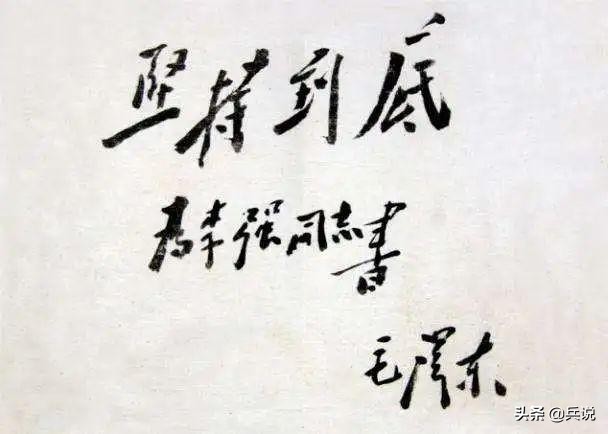 坚持到底
为李强同志书
毛泽东
头条 @兵说